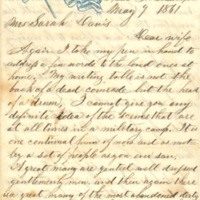 May 9 1861.
Mrs Sarah Davis
Dear wife
Again I take my pen in hand to
address a few words to the loved ones at
home. My writing table is not the
back of a dead comrade but the head
of a drum. I cannot give you any
definite idea of the scenes that are
at all times in a military camp. It is
one continual hum of noise and
by a set of people as you ever saw.
A great many are genteel well dressed
gentlemenly men and then again there
is a great many of the most abandoned dirty